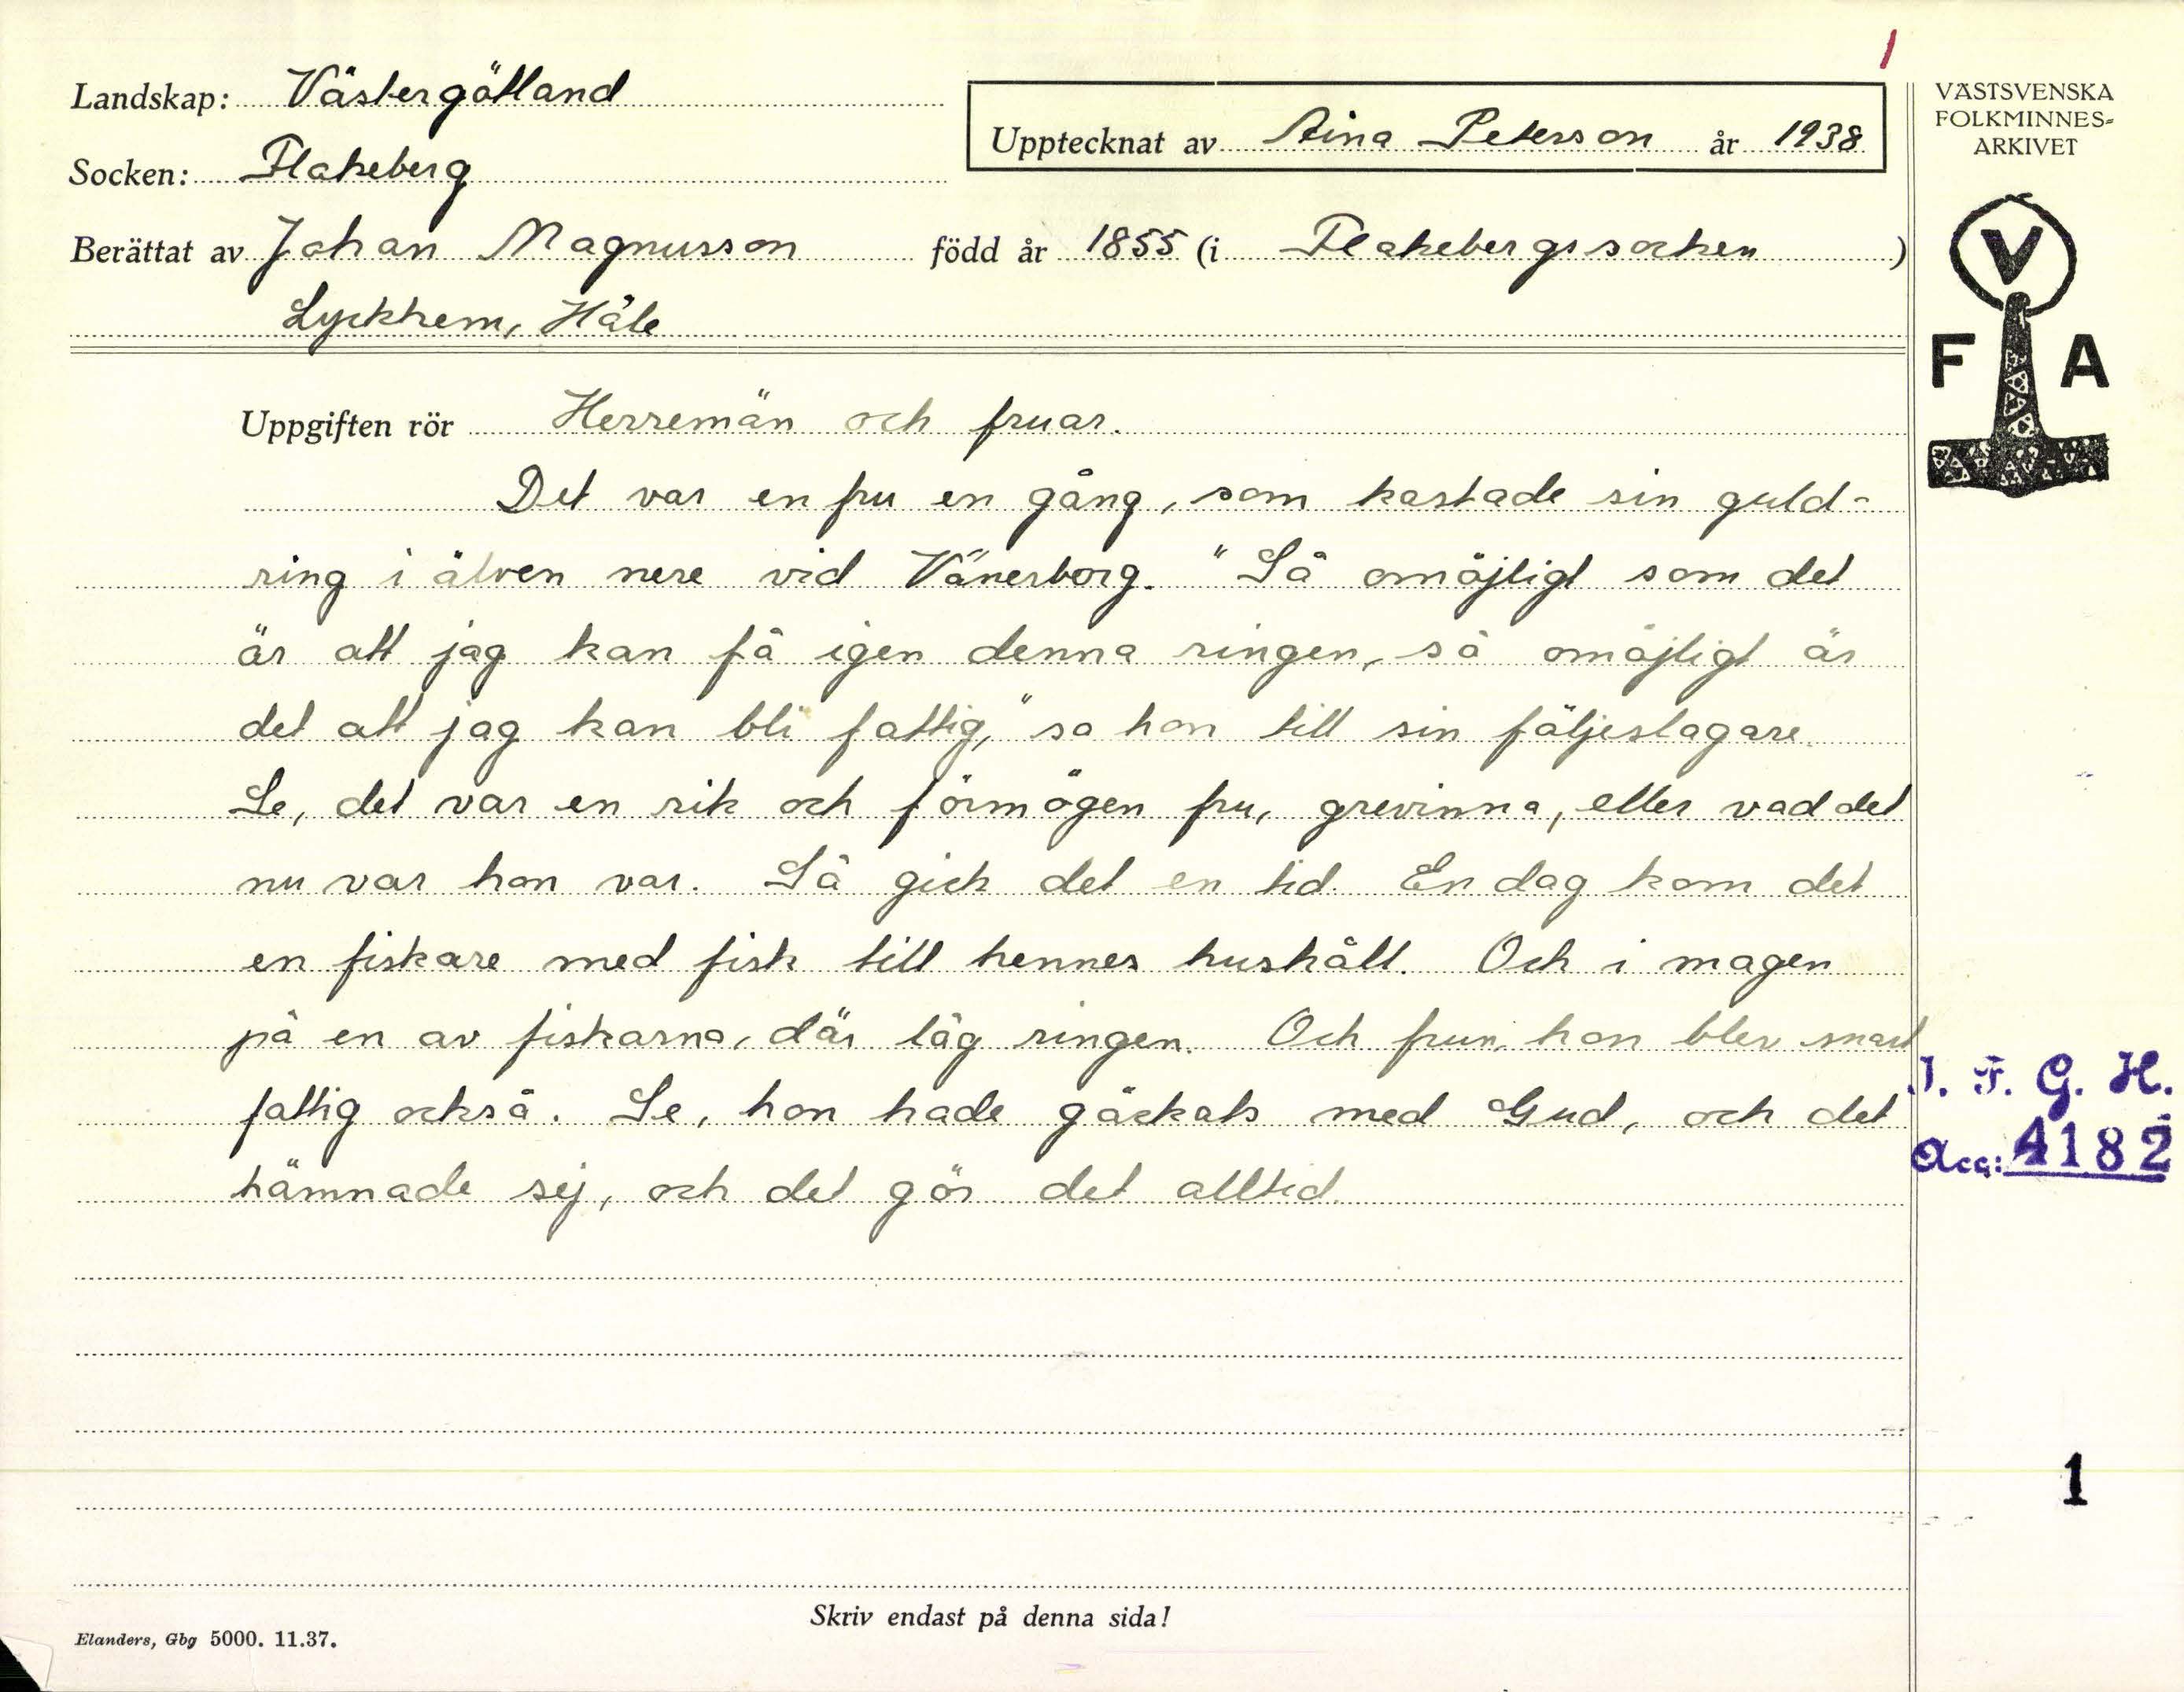 1
Landskap: Västergötland
Socken: Flakeberg
Upptecknat av Aina Peterson år 1938
Berättat av Johan Magnusson född år 1855 (i Flakebergs socken)
Lyckhem, Häle
VÄSTSVENSKA
FOLKMINNES=
ARKIVET
V
F A
Uppgiften rör Herremän och fruar.
Det var en fru en gång, som kastade sin guld-
ring i älven nere vid Vänersborg. "Så omöjligt som det
är att jag kan få igen denna ringen, så omöjligt är
det att jag kan bli fattig," sa hon till sin följeslagare.
Se, det var en rik och förmögen fru, grevinna, eller vad det
nu var hon var. Så gick det en tid. En dag kom det
en fiskare med fisk till hennes hushåll. Och i magen
på en av fiskarna, där låg ringen. Och frun, hon blev snart
fattig också. Se, hon hade gäckats med Gud, och det
hämnade sej, och det gör det alltid.
I. F. G. H.
Acc: 4182
1
Skriv endast på denna sida!
Elanders, Gbg 5000. 11.37.